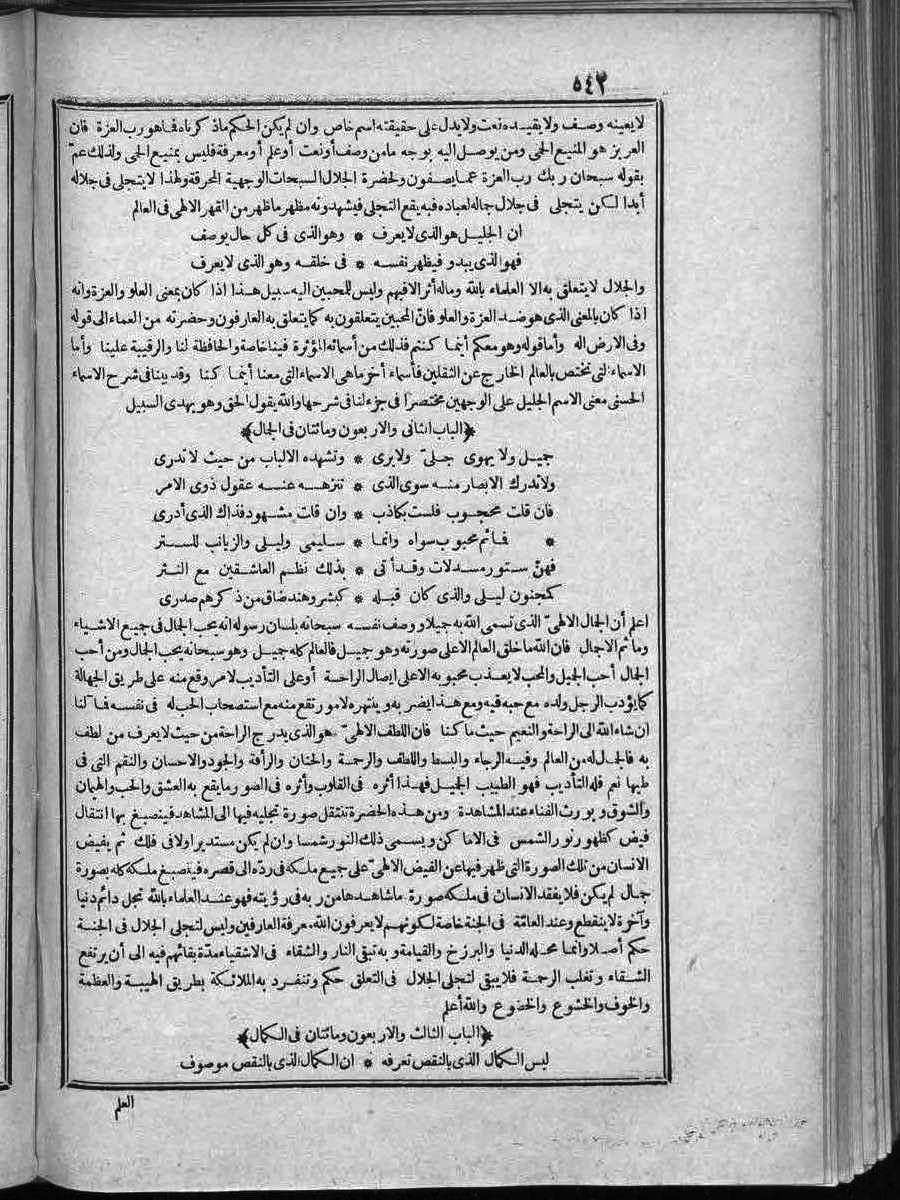 ٥٤٢
لا يعينه وصف ولا يقيده نعت ولا يدل على حقيقته اسم خاص وان لم يكن الحكم ماذكرناه فاهو رب العزة فان
العزيز هو المنيع الحمى ومن يوصل اليه بوجه مامن وصف أو نعت أو علم أو معرفة فليس بمنيع الحمى ولذلك عمّ
بقوله سبحان ربك رب العزة عما يصفون ولحضرة الجلال السبحات الوجهية المحرقة ولهذا لا يتجلى فى جلاله
أبدا لكن يتجلى فى جلال جماله لعباده فبه يقع التجلى فيشهدونه مظهر ما ظهر من القهر الالهى فى العالم
ان الجليل هو الذى لا يعرف * وهو الذى فى كل حال يوصف
فهو الذى يبدو فيظهر نفسه * فى خلقه وهو الذى لا يعرف
والجلال لا يتعلق به الا العلماء بالله وماله أثر الافيهم وليس للمحبين اليه سبيل هذا اذا كان بمعنى العلو والعزة وانه
اذا كان بالمعنى الذى هو ضد العزة والعلو فانّ المحبين يتعلقون به كما يتعلق به العارفون وحضرته من العماء الى قوله
وفى الارض اله وأما قوله وهو معكم أينما كنتم فذلك من أسمائه المؤثرة فينا خاصة والحافظة لنا والرقيبة علينا وأما
الاسماء التى تختص بالعالم الخارج عن الثقلين فأسماء أخر ماهى الاسماء التى معنا أينما كنا وقد بينا فى شرح الاسماء
الحسنى معنى الاسم الجليل على الوجهين مختصرا فى جزء لنا فى شرحها والله يقول الحق وهو يهدى السبيل
﴿الباب الثانى والاربعون ومائتان فى الجمال﴾
جميل ولا يهوى جلىّ ولا يرى * وتشهده الالباب من حيث لا تدرى
ولا تدرك الابصار منه سوى الذى * تنزهه عنه عقول ذوى الامر
فان قلت محجوب فلست بكاذب * وان قلت مشهود فذاك الذى أدرى
* فما ثم محبوب سواه وانما * سليمى وليلى والزيانب للستر
فهنّ ستور مسدلات وقد أتى * بذلك نظم العاشقين مع النثر
كمجنون ليلى والذى كان قبله * كبشر وهند ضاق من ذكرهم صدرى
اعلم أن الجمال الالهىّ الذى تسمى الله به جميلا ووصف نفسه سبحانه بلسان رسوله انه يحب الجمال فى جميع الاشياء
وما ثم الاجمال فان الله ما خلق العالم الا على صورته وهو جميل فالعالم كله جميل وهو سبحانه يحب الجمال ومن أحب
الجمال أحب الجميل والمحب لا يعذب محبوبه الا على ايصال الراحة أو على التأديب لامر وقع منه على طريق الجهالة
كما يؤدب الرجل ولده مع حبه فيه ومع هذا يضربه وينتهره لامور تقع منه مع استصحاب الحب له فى نفسه فمآلنا
ان شاء الله الى الراحة والنعيم حيث ما كنا فان اللطف الالهىّ هو الذى يدرج الراحة من حيث لا يعرف من لطف
به فالجمال له من العالم وفيه الرجاء والبسط واللطف والرحمة والحنان والرأفة والجود والاحسان والنقم التى فى
طيها نعم فله التأديب فهو الطبيب الجميل فهذا أثره فى القلوب وأثره فى الصور ما يقع به العشق والحب والهيمان
والشوق ويورث الفناء عند المشاهدة ومن هذه الحضرة تنتقل صورة تجليه فيها الى المشاهد فينصبغ بها انتقال
فيض كظهور نور الشمس فى الاماكن ويسمى ذلك النور شمسا وان لم يكن مستديرا ولا فى فلك ثم يفيض
الانسان من تلك الصورة التى ظهر فيها عن الفيض الالهىّ على جميع ملكه فى ردّه الى قصره فينصبغ ملكه كله بصورة
جمال لم يكن فلا يفقد الانسان فى ملكه صورة ما شاهدها من ربه فى رؤيته فهو عند العلماء بالله تجل دائم دنيا
وآخرة لا ينقطع وعند العامّة فى الجنة خاصة لكونهم لا يعرفون الله معرفة العارفين وليس لتجلى الجلال فى الجنة
حكم أصلا وانما محله الدنيا والبرزخ والقيامة وبه تبقى النار والشقاء فى الاشقياء مدّة بقائهم فيه الى أن يرتفع
الشقاء وتغلب الرحمة فلا يبقى لتجلى الجلال فى التعلق حكم وتنفرد به الملائكة بطريق الهيبة والعظمة
والخوف والخشوع والخضوع والله أعلم
﴿الباب الثالث والاربعون ومائتان فى الكمال﴾
ليس الكمال الذى بالنقص تعرفه * ان الكمال الذى بالنقص موصوف
العلم